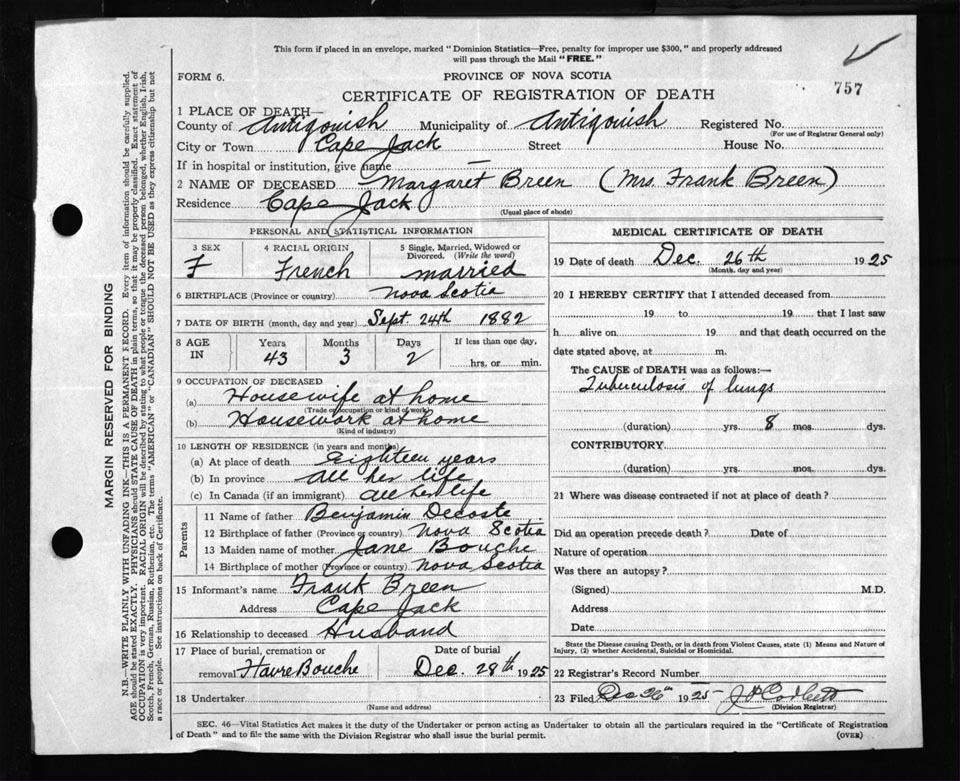 This form if placed in an envelope, marked "Dominion Statistics—Free, penalty for improper use $300," and properly addressed
will pass through the Mail "FREE."
FORM 6.
PROVINCE OF NOVA SCOTIA
757
CERTIFICATE OF REGISTRATION OF DEATH
1 PLACE OF DEATH—
County of Antigonish Municipality of Antigonish Registered No.
(For use of Registrar General only)
City or Town Cape Jack Street House No.
If in hospital or institution, give name —
2 NAME OF DECEASED Margaret Breen (Mrs. Frank Breen)
Residence Cape Jack
(Usual place of abode)
PERSONAL AND STATISTICAL INFORMATION
3 SEX 4 RACIAL ORIGIN 5 Single, Married, Widowed or
Divorced. (Write the word)
F French married
6 BIRTHPLACE (Province or country) Nova Scotia
7 DATE OF BIRTH (month, day and year) Sept. 24th 1882
8 AGE IN Years Months Days If less than one day,
43 3 2 hrs. or min.
9 OCCUPATION OF DECEASED
(a) Housewife at home
(Trade or occupation or kind of work)
(b) Housework at home
(Kind of industry)
10 LENGTH OF RESIDENCE (in years and months)
(a) At place of death Eighteen years
(b) In province all her life
(c) In Canada (if an immigrant) all her life
Parents
11 Name of father Benjamin Decoste
12 Birthplace of father (Province or country) Nova Scotia
13 Maiden name of mother Jane Bouche
14 Birthplace of mother (Province or country) Nova Scotia
15 Informant's name Frank Breen
Address Cape Jack
16 Relationship to deceased Husband
17 Place of burial, cremation or Date of burial
removal Havre Bouche Dec. 28th 1925
18 Undertaker
(Name and address)
MEDICAL CERTIFICATE OF DEATH
19 Date of death Dec. 26th 1925
(Month, day and year)
20 I HEREBY CERTIFY that I attended deceased from
19 to 19 that I last saw
h alive on 19 and that death occurred on the
date stated above, at m.
The CAUSE of DEATH was as follows:—
Tuberculosis of lungs
(duration) yrs. 8 mos. dys.
CONTRIBUTORY
(duration) yrs. mos. dys.
21 Where was disease contracted if not at place of death?
Did an operation precede death? Date of
Nature of operation
Was there an autopsy?
(Signed) M.D.
Address
Date
State the Disease causing Death, or in death from Violent Causes, state (1) Means and Nature of
Injury, (2) whether Accidental, Suicidal or Homicidal.
22 Registrar's Record Number
23 Filed Dec 26th 1925 J P Corbett
(Division Registrar)
SEC. 46—Vital Statistics Act makes it the duty of the Undertaker or person acting as Undertaker to obtain all the particulars required in the "Certificate of Registration
of Death" and to file the same with the Division Registrar who shall issue the burial permit.
(OVER)
MARGIN RESERVED FOR BINDING
N.B.—WRITE PLAINLY WITH UNFADING INK—THIS IS A PERMANENT RECORD. Every item of information should be carefully supplied.
AGE should be stated EXACTLY. PHYSICIANS should STATE CAUSE OF DEATH in plain terms, so that it may be properly classified. Exact statement of
OCCUPATION is very important. RACIAL ORIGIN will be described by stating to what people or tongue the deceased person belonged, whether English, Irish,
Scotch, French, German, Russian, Ruthenian, etc. The terms "AMERICAN" or "CANADIAN" SHOULD NOT BE USED as they express citizenship but not
a race or people. See instructions on back of Certificate.